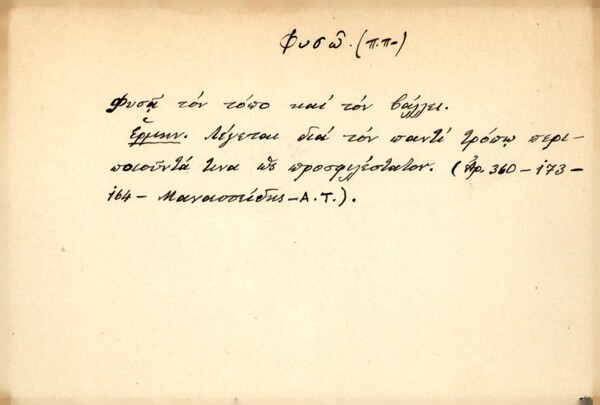 Φυσῶ. (π.π.)
Φυσᾷ τόν τόπο καί τόν βάλλει.
Ἑρμην. Λέγεται διά τόν παντί τρόπῳ περι-
ποιοῦντά τινα ὡς προσφιλέστατον. (Ἀρ. 360 - 173 -
164 - Μανασσείδης - Α.Τ.).